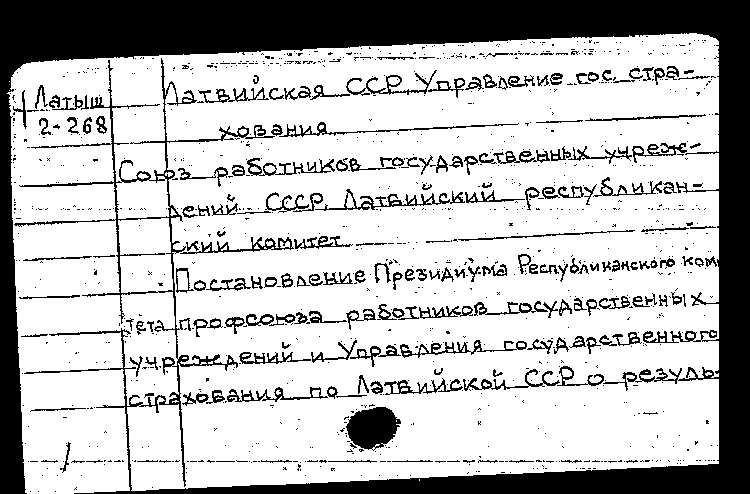 Латвийская ССР, Управление гос. стра-
Латыш
2-268
хования
Союз работников государственных учреж-
дений СССР. Латвийский республикан-
ский комитет
Постановление Президиума Республиканского коми
тета профсоюза работников государственных
учреждений и Управления государственного
страхования по Латвийской ССР о резуль-